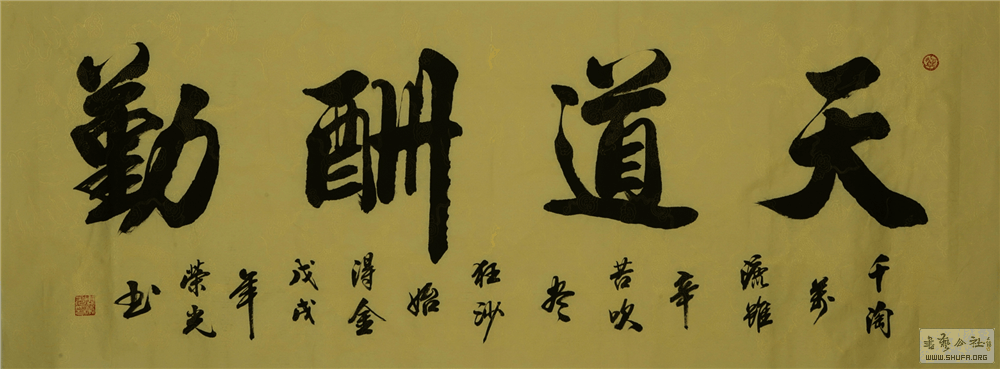 天道酬勤
千淘
萬
漉雖
辛
苦吹
尽
狂沙
始
得金
戊戌
年
榮光
书
书艺公社
WWW.SHUFA.ORG